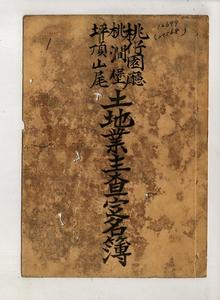 桃仔園廳
桃澗堡
坪頂山尾
土地業主查定名簿